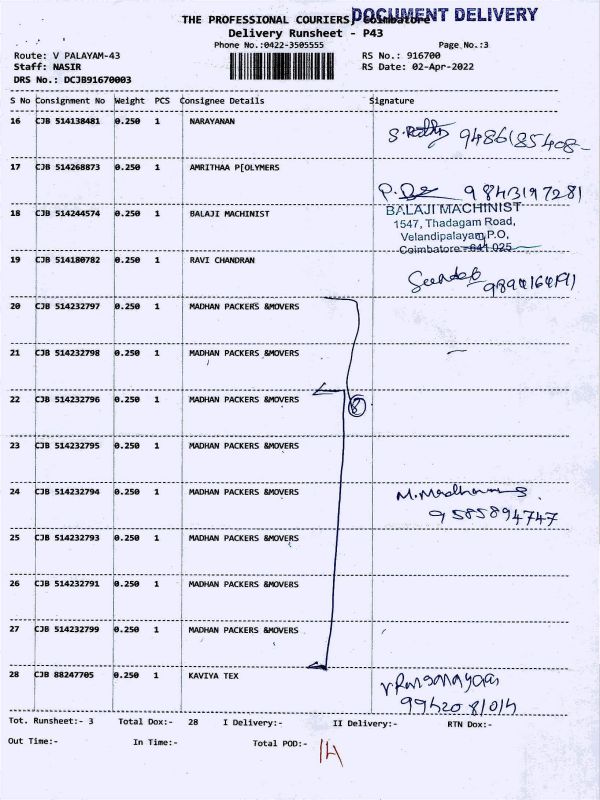 DOCUMENT DELIVERY
THE PROFESSIONAL COURIERS, Coimbatore
Delivery Runsheet - P43
Phone No.:0422-3505555 Page No.:3
Route: V PALAYAM-43 RS No.: 916700
Staff: NASIR RS Date: 02-Apr-2022
DRS No.: DCJB91670003
S No Consignment No Weight PCS Consignee Details Signature
16 CJB 514138481 0.250 1 NARAYANAN
17 CJB 514268873 0.250 1 AMRITHAA P[OLYMERS
9843197281
18 CJB 514244574 0.250 1 BALAJI MACHINIST
BALAJI MACHINIST
1547, Thadagam Road,
Velandipalayam P.O,
Coimbatore-641 025
19 CJB 514180782 0.250 1 RAVI CHANDRAN
20 CJB 514232797 0.250 1 MADHAN PACKERS &MOVERS
21 CJB 514232798 0.250 1 MADHAN PACKERS &MOVERS
22 CJB 514232796 0.250 1 MADHAN PACKERS &MOVERS
8
23 CJB 514232795 0.250 1 MADHAN PACKERS &MOVERS
24 CJB 514232794 0.250 1 MADHAN PACKERS &MOVERS
9585894747
25 CJB 514232793 0.250 1 MADHAN PACKERS &MOVERS
26 CJB 514232791 0.250 1 MADHAN PACKERS &MOVERS
27 CJB 514232799 0.250 1 MADHAN PACKERS &MOVERS
28 CJB 88247705 0.250 1 KAVIYA TEX
Tot. Runsheet:- 3 Total Dox:- 28 I Delivery:- II Delivery:- RTN Dox:-
Out Time:- In Time:- Total POD:- 14